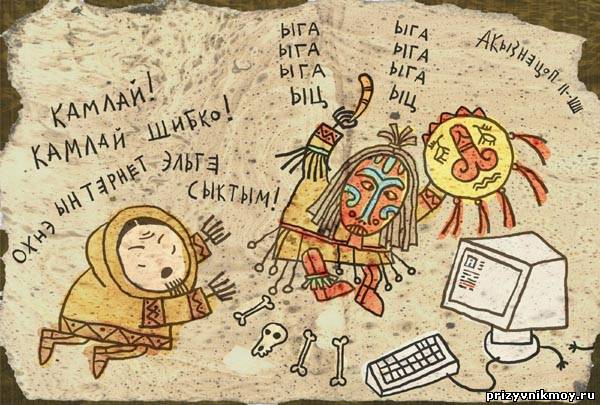 КАМЛАЙ!
КАМЛАЙ ШИБКО!
ОХНЭ ЫНТЭРНЕТ ЭЛЬГЭ
СЫКТЫМ!
ЫГА
ЫГА
ЫГА
ЫЦ
ЫГА
ЫГА
ЫГА
ЫЦ
prizyvnikmoy.ru